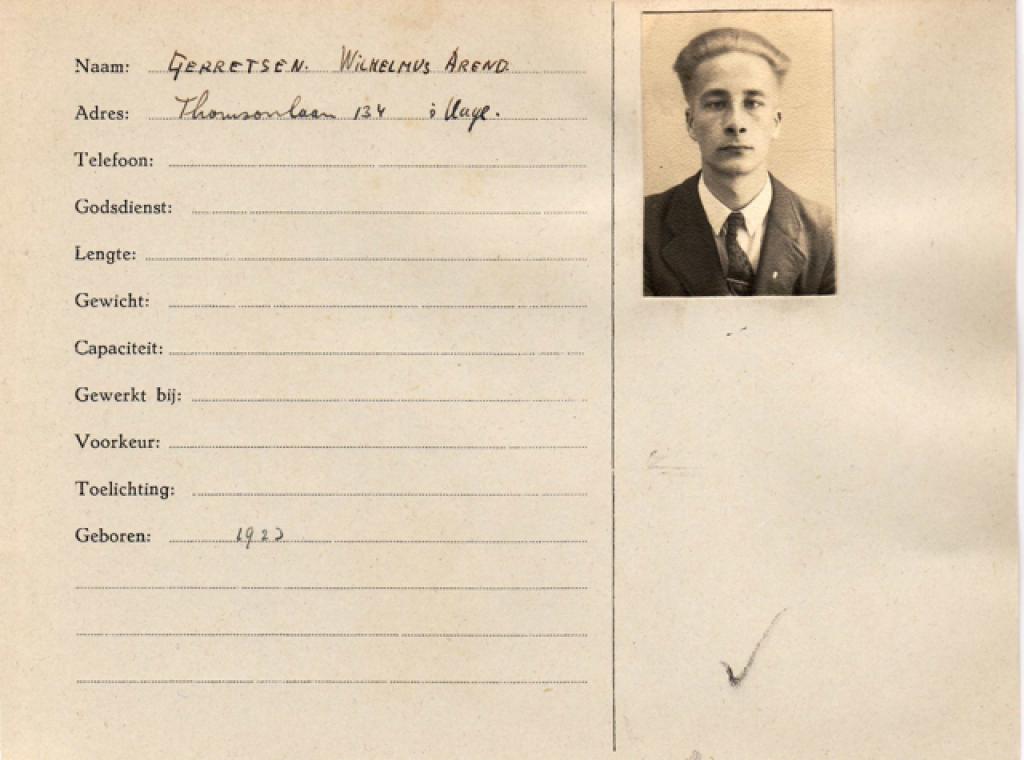 Naam: GERRETSEN. WILHELMUS AREND.
Adres: Thomsonlaan 134 's Hage.
Telefoon:
Godsdienst:
Lengte:
Gewicht:
Capaciteit:
Gewerkt bij:
Voorkeur:
Toelichting:
Geboren: 1922